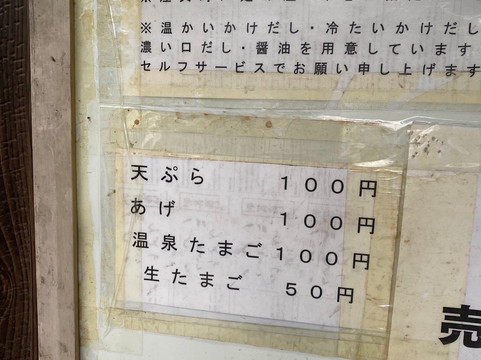 ※温かいかけだし・冷たいかけだし
濃い口だし・醤油を用意しています
セルフサービスでお願い申し上げます
天ぷら １００円
あげ １００円
温泉たまご１００円
生たまご ５０円
売